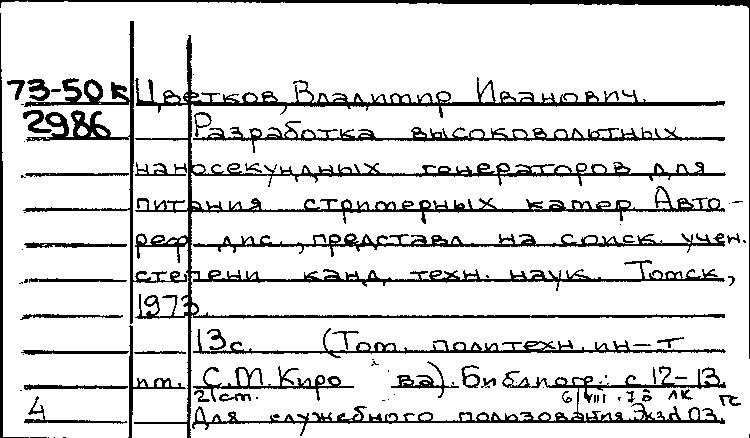 73-50к Цветков, Владимир Иванович.
2986 Разработка высоковольтных
наносекундных генераторов для
питания стримерных камер. Авто-
реф. дис., представл. на соиск. учен.
степени канд. техн. наук. Томск,
1973.
13с. (Том. политехн. ин-т
им. С.М. Киро ва). Библиогр.: с. 12-13.
21 ст. 6/VIII.73 ЛК ГС
4 Для служебного пользования. Экз. 03.